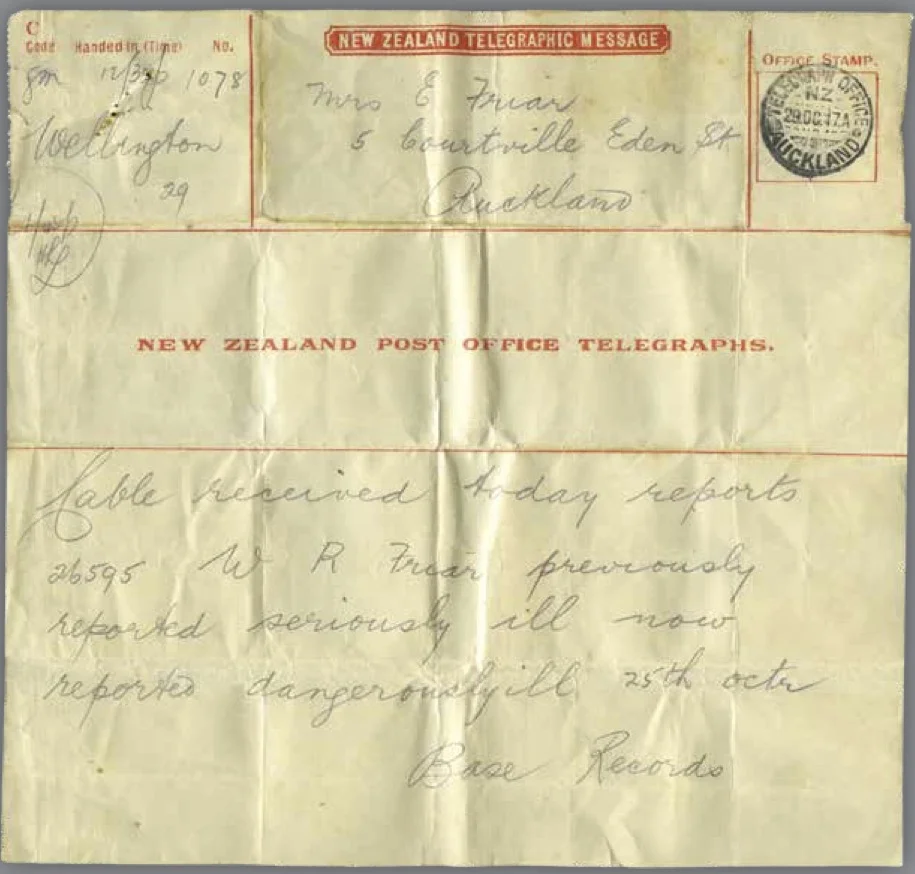 C
NEW ZEALAND TELEGRAPHIC MESSAGE
Code Handed in (Time) No.
OFFICE STAMP.
gm 12/30p 1078
Mrs E Friar
TELEGRAPH OFFICE
NZ
29OC.17.A
AUCKLAND
Wellington
5 Courtville Eden St
29
Auckland
NEW ZEALAND POST OFFICE TELEGRAPHS.
Cable received today reports
26595 W R Friar previously
reported seriously ill now
reported dangerously ill 25th octr
Base Records